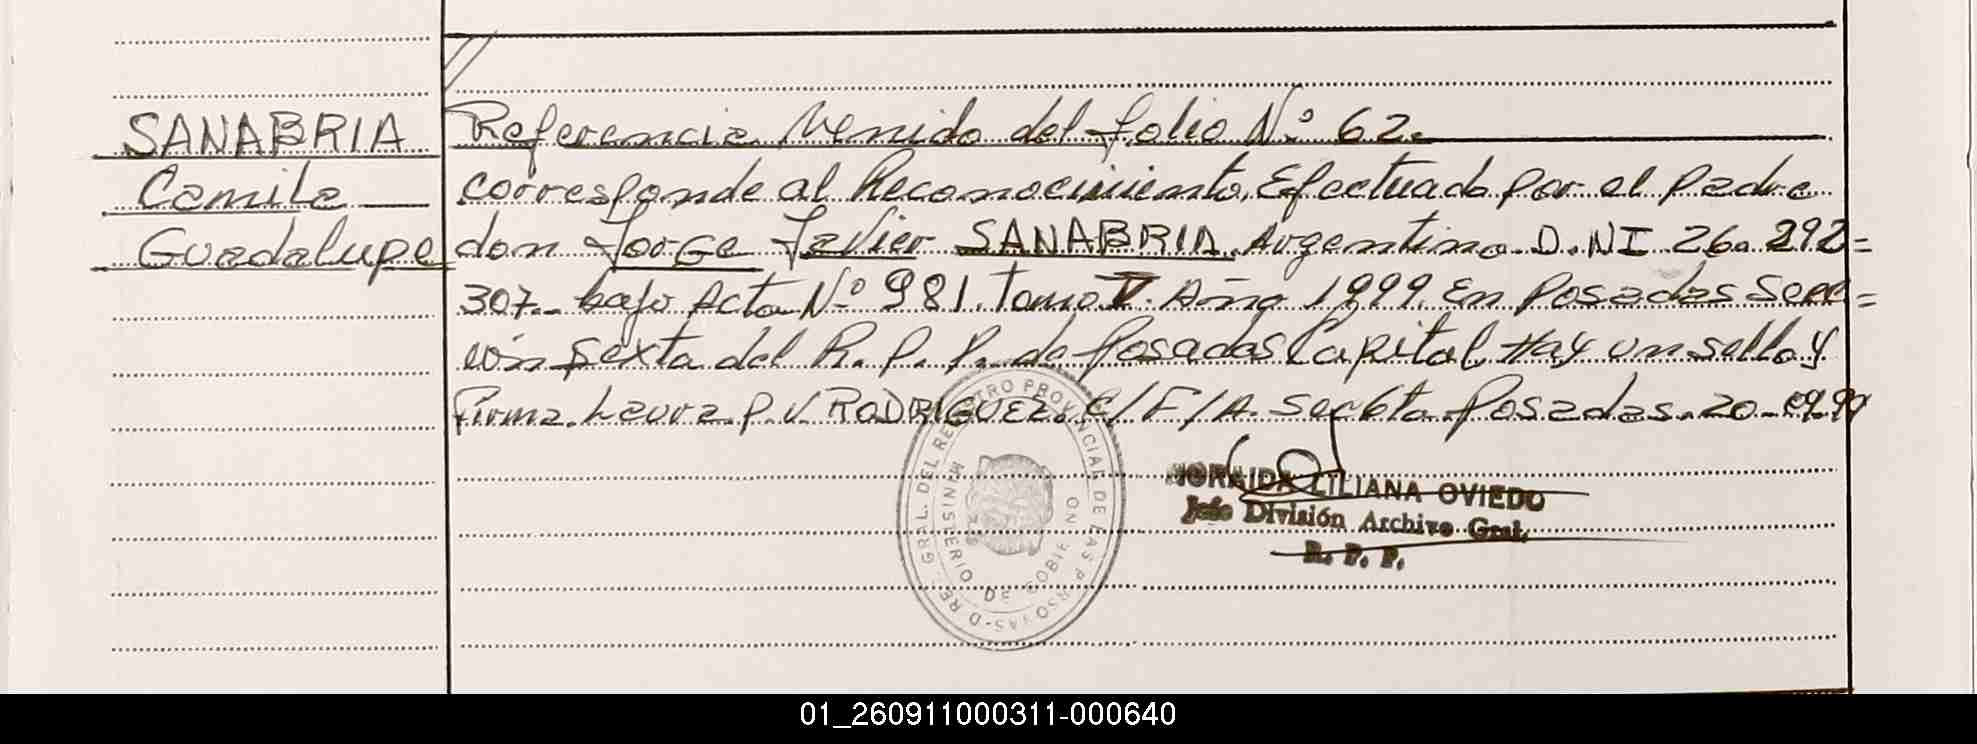 SANABRIA
Camila
Guadalupe
Referencia Venido del folio Nº 62.
corresponde al Reconocimiento, Efectuado por el padre
don Jorge Javier SANABRIA. Argentino. D.NI 26.292=
307.- bajo Acta Nº 981. Tomo V. Año 1999. En Posadas Secc=
ión Sexta del R. P. P. de Posadas Capital. Hay un sello y
Firma. Laura P. V. RODRIGUEZ. C/F/A. Secc 6ta. Posadas. 20-
REGISTRO PROVINCIAL DE LAS PERSONAS
MINISTERIO DE GOBIERNO
LILIANA OVIEDO
Jefe División Archivo Gral.
R. P. P.
01_260911000311-000640